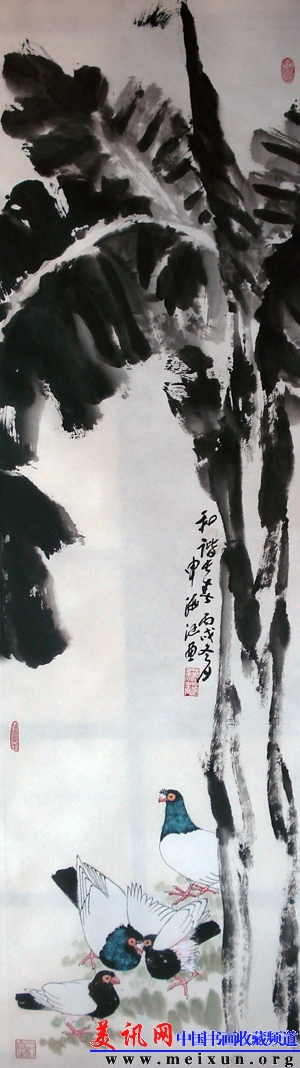 和谐长春 丙戌冬月
申海江画
美讯网 中国书画收藏频道
www.meixun.org